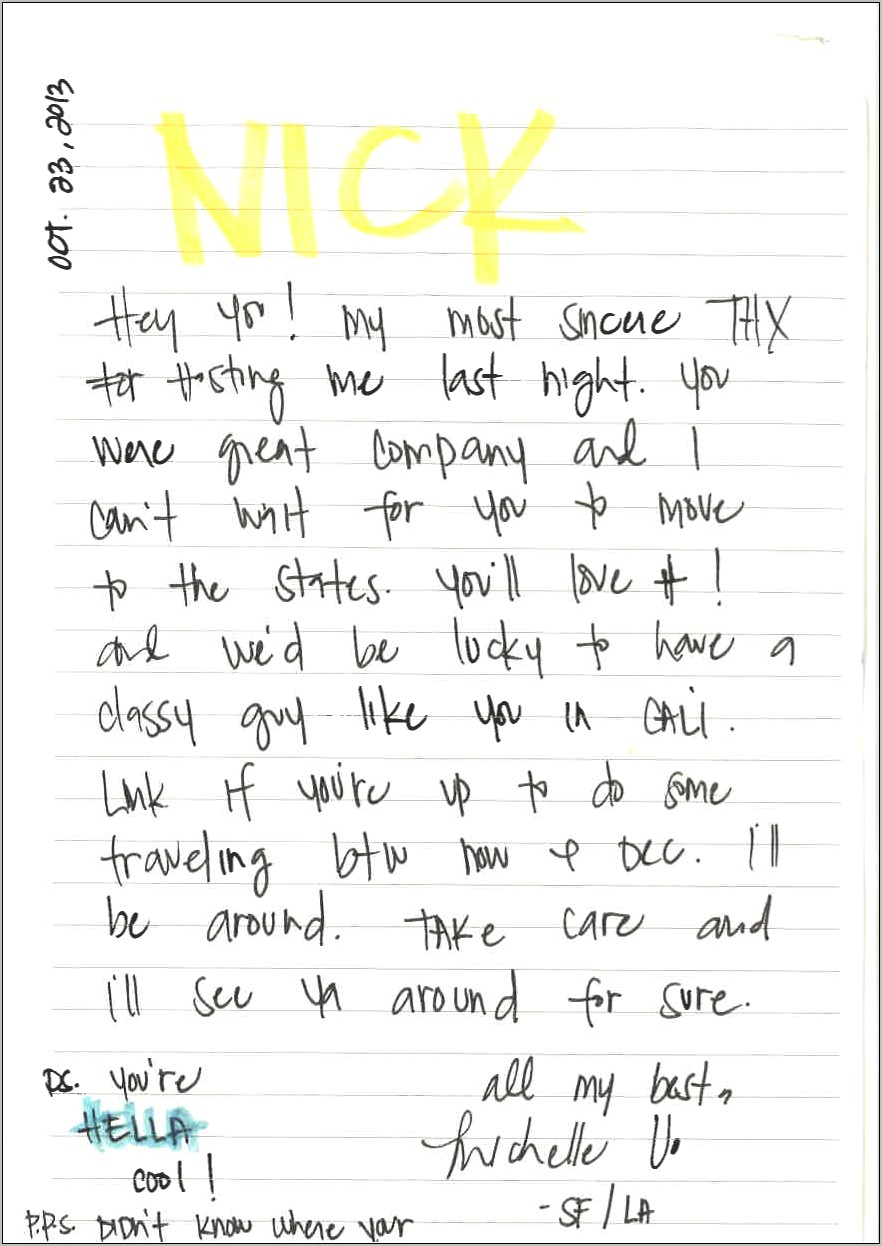 OCT. 23, 2013
NICK
Hey You! My most sincere THX
for Hosting me last night. You
were great company and I
can't wait for you to move
to the states. You'll love it!
and we'd be lucky to have a
classy guy like you in CALI.
Link if you're up to do some
traveling btw now & Dec. I'll
be around. TAKE care and
i'll see ya around for sure.
all my best,
Michelle U.
- SF / LA
P.S. You're
HELLA
cool!
P.P.S. DIDN'T know where your